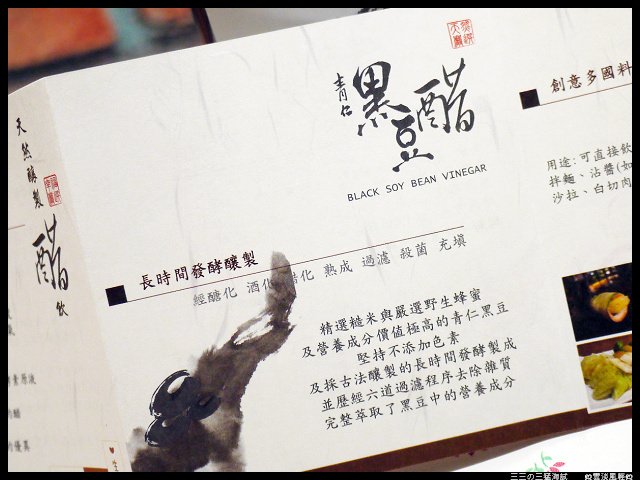 天然釀製
醋
飲
青仁
黑豆醋
BLACK SOY BEAN VINEGAR
長時間發酵釀製
經醣化 酒化 醋化 熟成 過濾 殺菌 充填
精選糙米與嚴選野生蜂蜜
及營養成分價值極高的青仁黑豆
堅持不添加色素
及採古法釀製的長時間發酵製成
並歷經六道過濾程序去除雜質
完整萃取了黑豆中的營養成分
創意多國料
用途:可直接飲
拌麵、沾醬(如
沙拉、白切肉
素原液
的醋
的優異
三三の三猛海賊